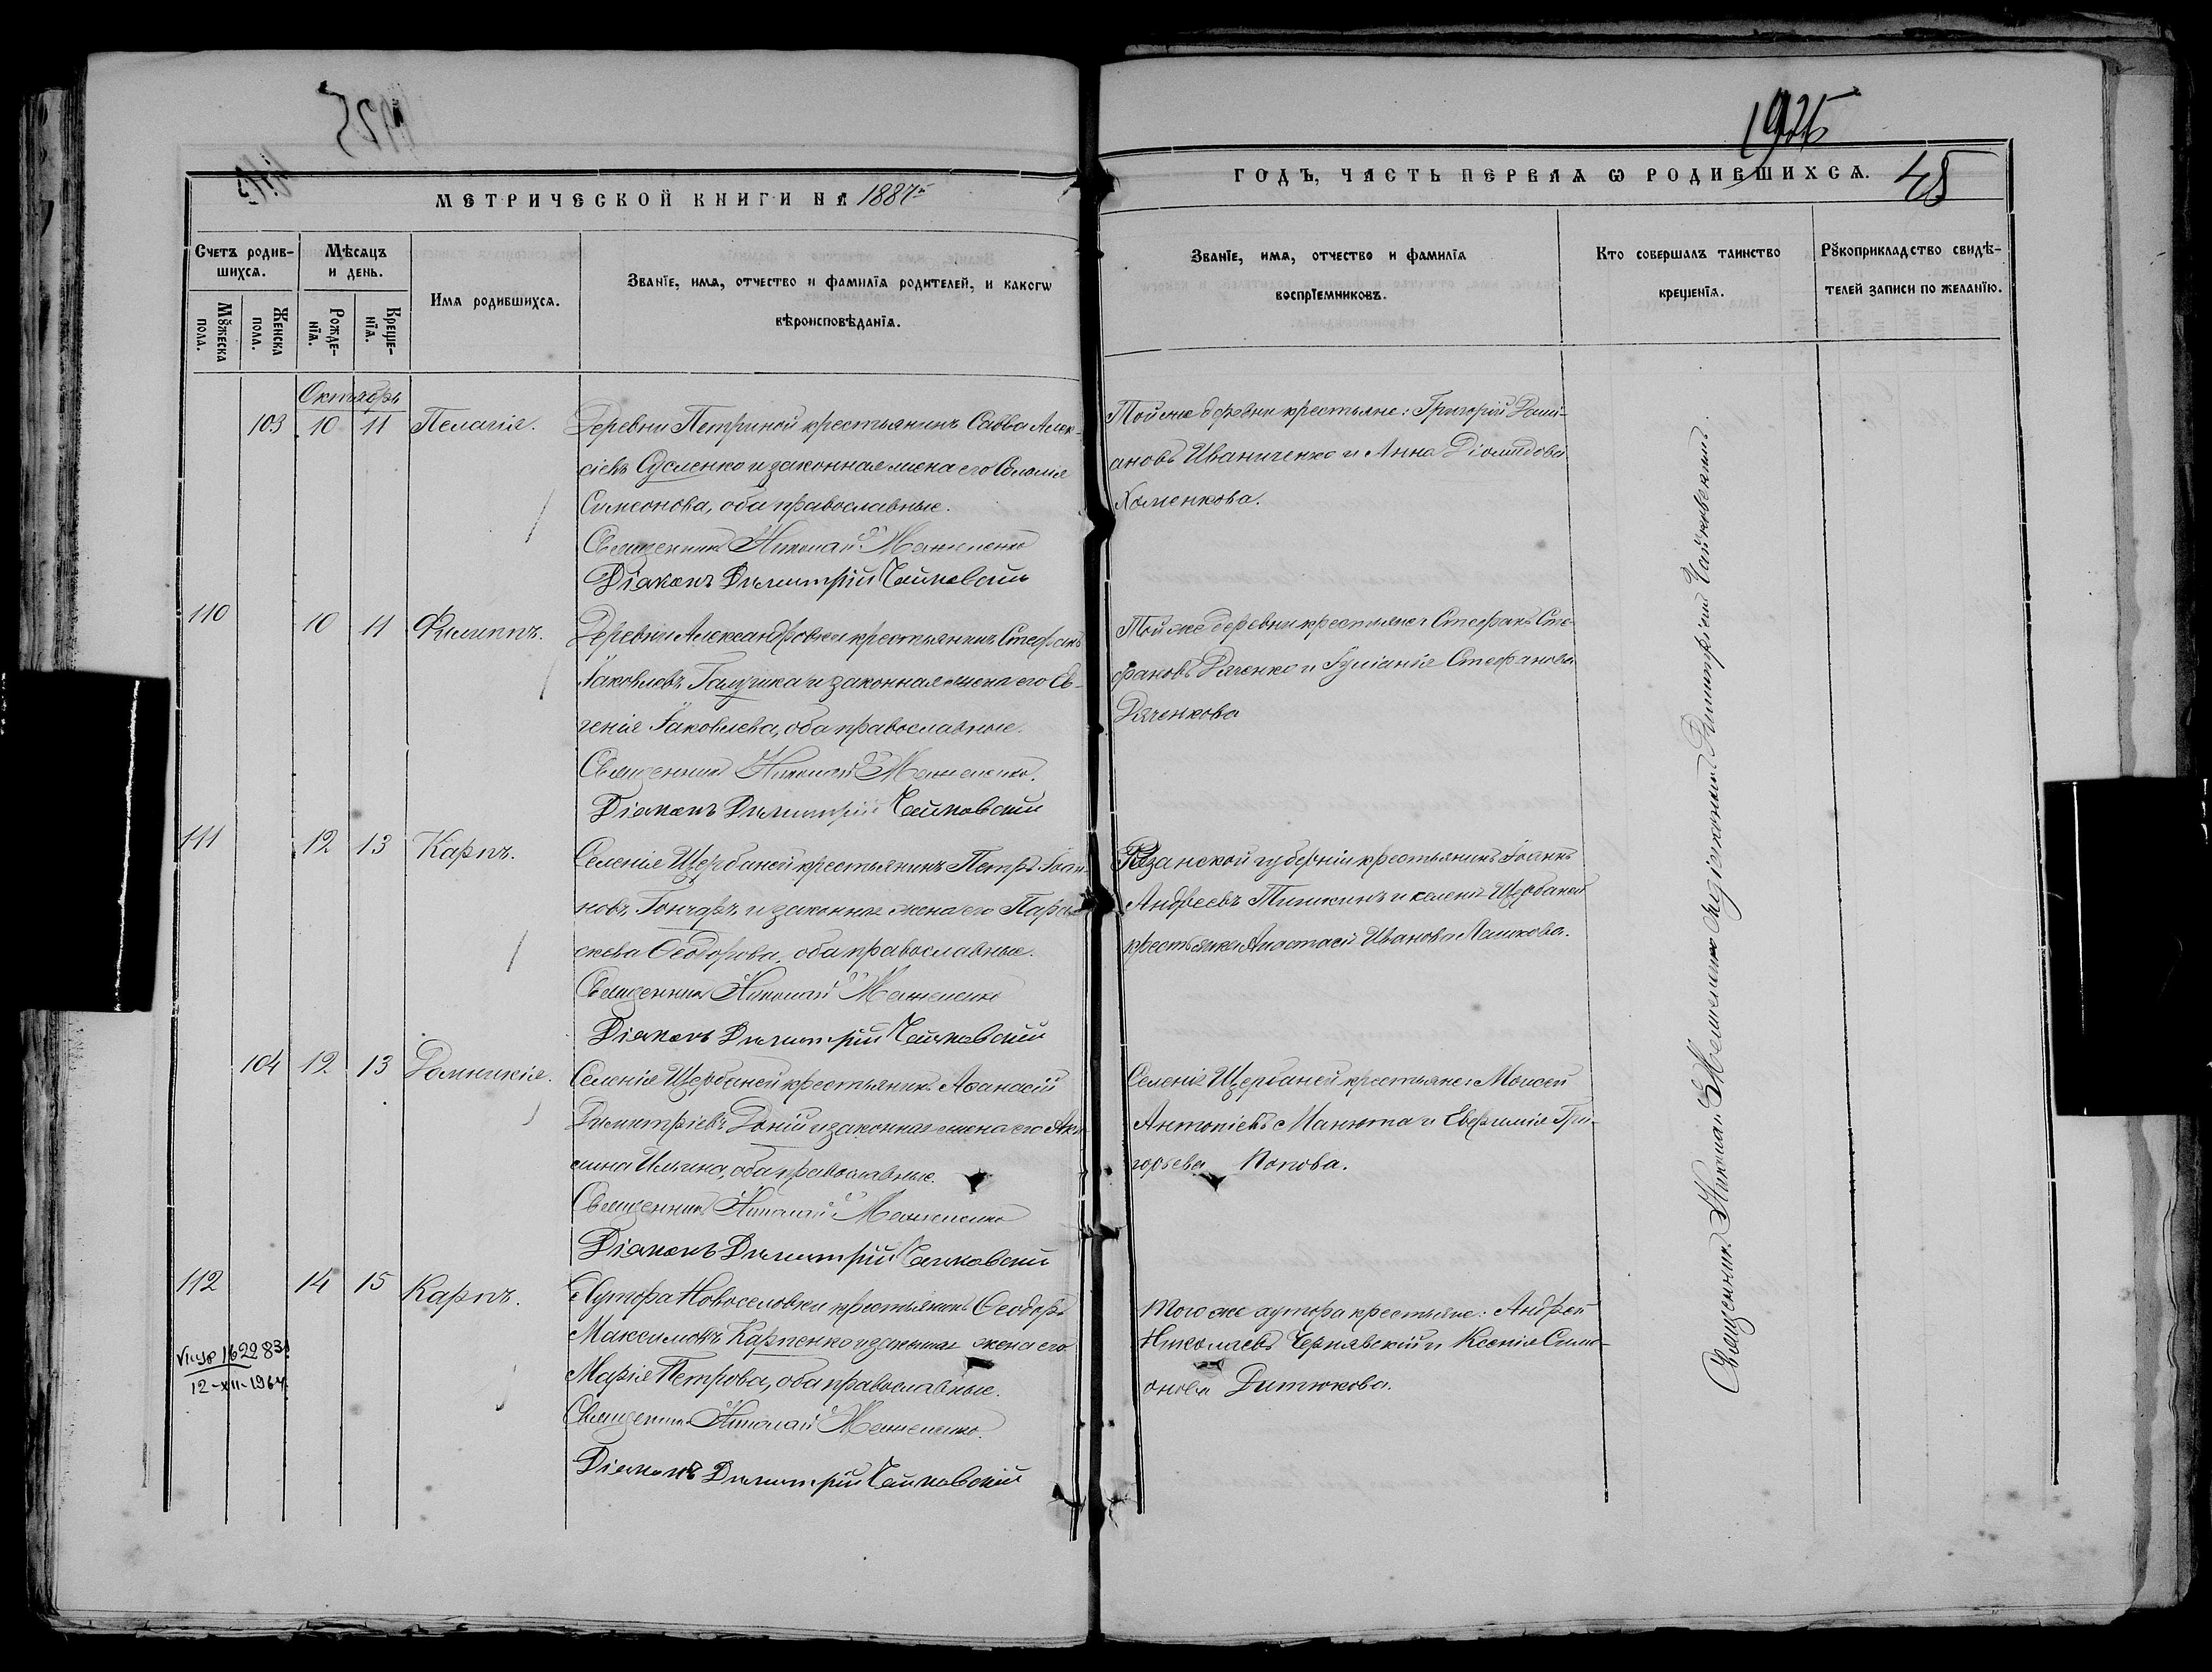 1925
МЕТРИЧЕСКОЙ КНИГИ НА 1887й
ГОДЪ, ЧАСТЬ ПЕРВАЯ Ѡ РОДИВШИХСЯ. 48
Счетъ родив-
шихся.
Мꙋжеска
пола.
Женска
пола.
Мѣсяцъ
и день.
Рожде-
нїя.
Креще-
нїя.
Имя родившихся.
Званїе, имя, отчество и фамилїя родителей, и какогѡ
вѣроисповѣданїя.
Званїе, имя, отчество и фамилїя
воспрїемниковъ.
Кто совершалъ таинство
крещенїя.
Рꙋкоприкладство свидѣ-
телей записи по желанїю.
Октябрь
103 10 11 Пелагія.
Деревни Петриной крестьянинъ Савва Алек-
сіевъ Сусленко и законная жена его Соломія
Симеонова, оба православные.
Священникъ Николай
Діаконъ Димитрій Чайковскій
Той же деревни крестьяне: Григорій
ановъ Иваниченко и Анна Діомидова
Хоменкова.
110 10 11 Филиппъ.
Деревни Александровки крестьянинъ Стефанъ
Іаковлевъ Галушка и законная жена его Ев-
генія Іаковлева, оба православные.
Священникъ Николай
Діаконъ Димитрій Чайковскій
Той же деревни крестьяне: Стефанъ Сте-
фановъ Дяченко и Іуліанія Стефанова
Дяченкова
111 12 13 Карпъ.
Селенія Щербаней крестьянинъ Петръ Іоан-
новъ Гончаръ и законная жена его Пара-
скева Ѳеодорова, оба православные.
Священникъ Николай
Діаконъ Димитрій Чайковскій
Рязанской губерніи крестьянинъ Іоаннъ
Андреевъ Тишкинъ и селенія Щербаней
крестьянка Анастасія Иванова
104 12 13 Домникія.
Селенія Щербаней крестьянинъ Аѳанасій
Димитріевъ Доній и законная жена его Аки-
лина Ильина, оба православные.
Священникъ Николай
Діаконъ Димитрій Чайковскій
Селенія Щербаней крестьяне: Моисей
Антоніевъ Манюта и Евфимія Гри-
горьева Попова.
112 14 15 Карпъ.
Хутора Новоселовки крестьянинъ Ѳеодоръ
Максимовъ Карпенко и законная жена его
Марія Петрова, оба православные.
Священникъ Николай
Діаконъ Димитрій Чайковскій
Того же хутора крестьяне: Андрей
Николаевъ Чернявскій и Ксенія Симе-
онова Дитюкова.
162283
12-XII-1964
Священникъ Николай съ діакономъ Димитріемъ Чайковскимъ